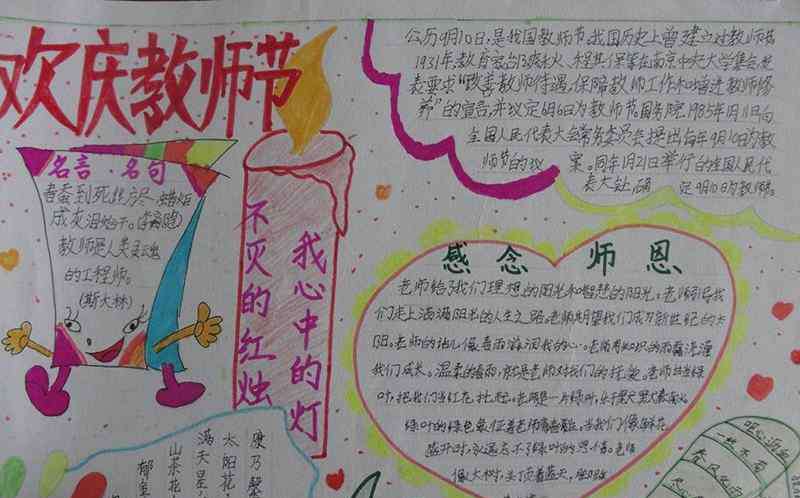 欢庆教师节
公历9月10日,是我国教师节,我国历史上曾建立过教师节
1931年,教育家邰爽秋、程其保等在南京中央大学集会,发
表要求“改善教师待遇,保障教师工作和增进教师修
养”的宣言,并议定6月6日为教师节。国务院1985年1月11日向
全国人民代表大会常务委员会提出每年9月10日为教
师节的议 案。同年1月21日举行的全国人民代
表大会 确 定9月10日为教师
名言·名句
春蚕到死丝方尽 蜡炬
成灰泪始干。(李商隐)
教师是人类灵魂
的工程师。
(斯大林)
我心中的灯
不灭的红烛
感念 师恩
老师给了我们理想的阳光和智慧的阳光,老师引导我
们走上洒满阳光的人生之路。老师期望我们成为新世纪的太
阳。老师的话儿像春雨滋润我的心。老师用知识的雨露浇灌
我们成长。温柔的春雨,就是老师对我们的抚爱。老师甘当绿
叶,把我们当红花
绿叶的绿色象征着老师青春
盛开时,永远忘不了绿叶的恩情。老师
像大树,头顶着蓝天,
康乃馨
太阳花
满天星
山茶花
郁金